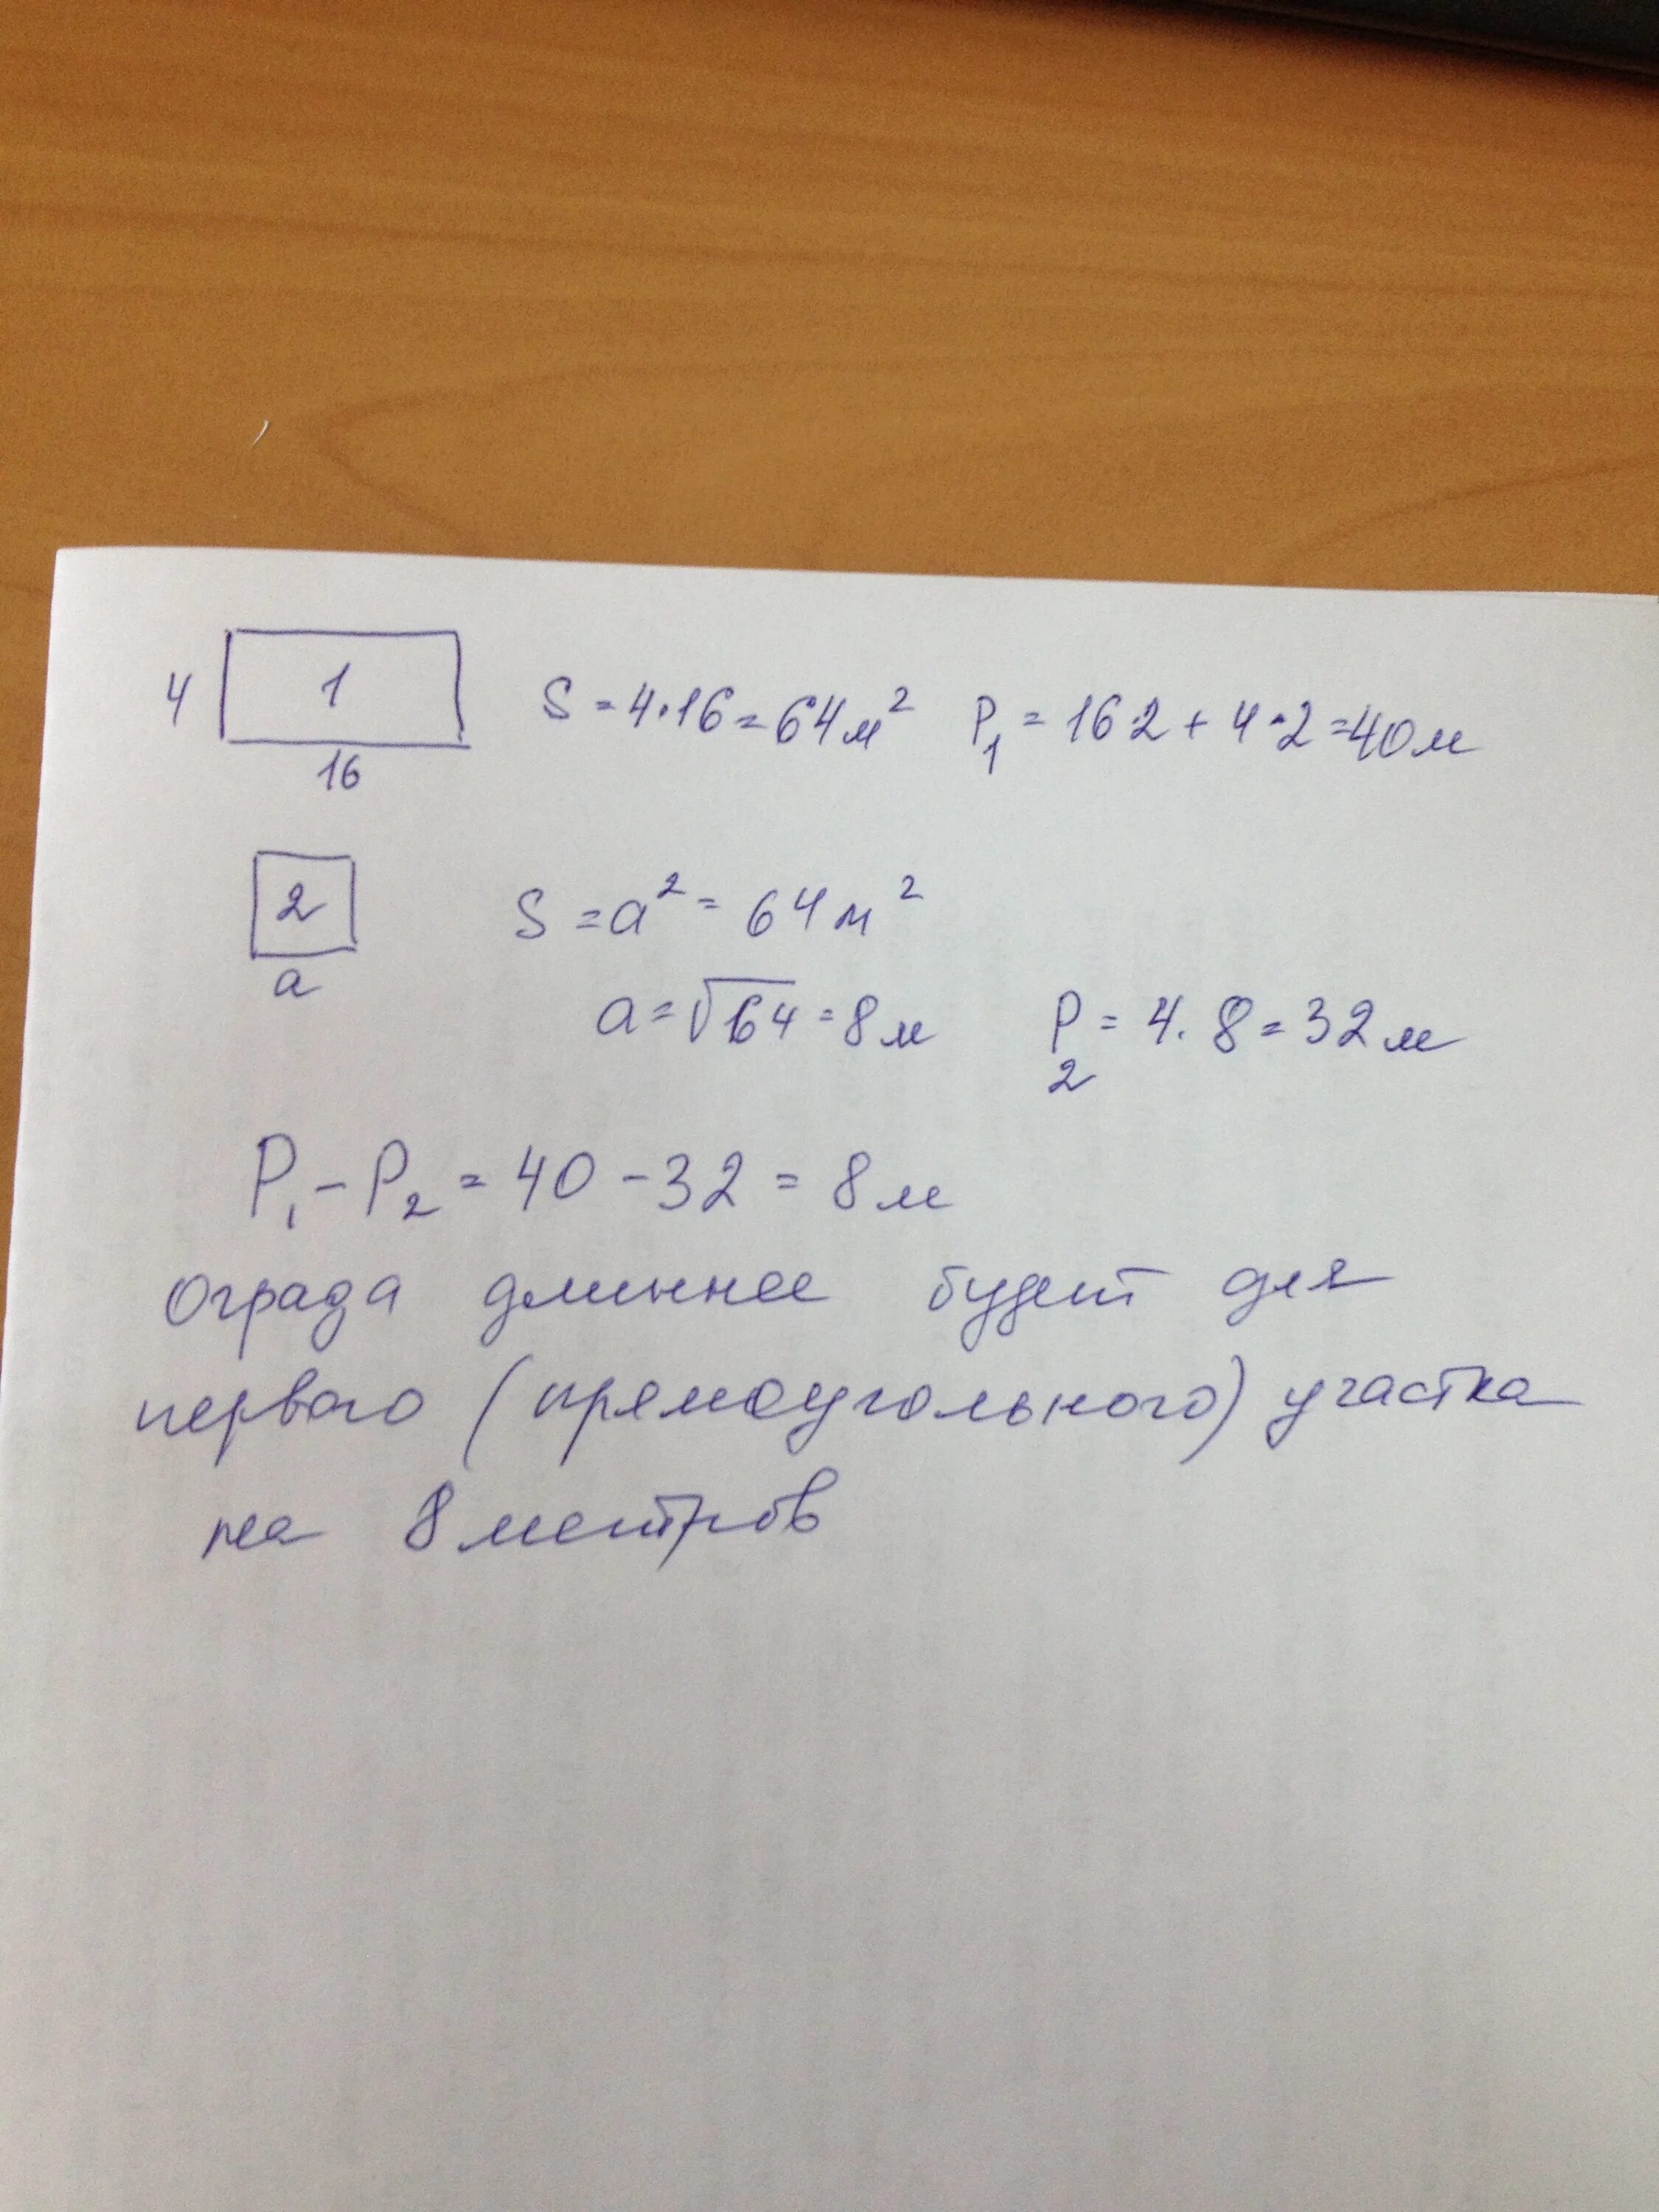 4 1 S = 4·16 = 64 м² P₁ = 16·2 + 4·2 = 40 м
16
2 S = a² = 64 м²
a
a = √64 = 8 м P₂ = 4·8 = 32 м
P₁ - P₂ = 40 - 32 = 8 м
Ограда длиннее будет для
первого (прямоугольного) участка
на 8 метров